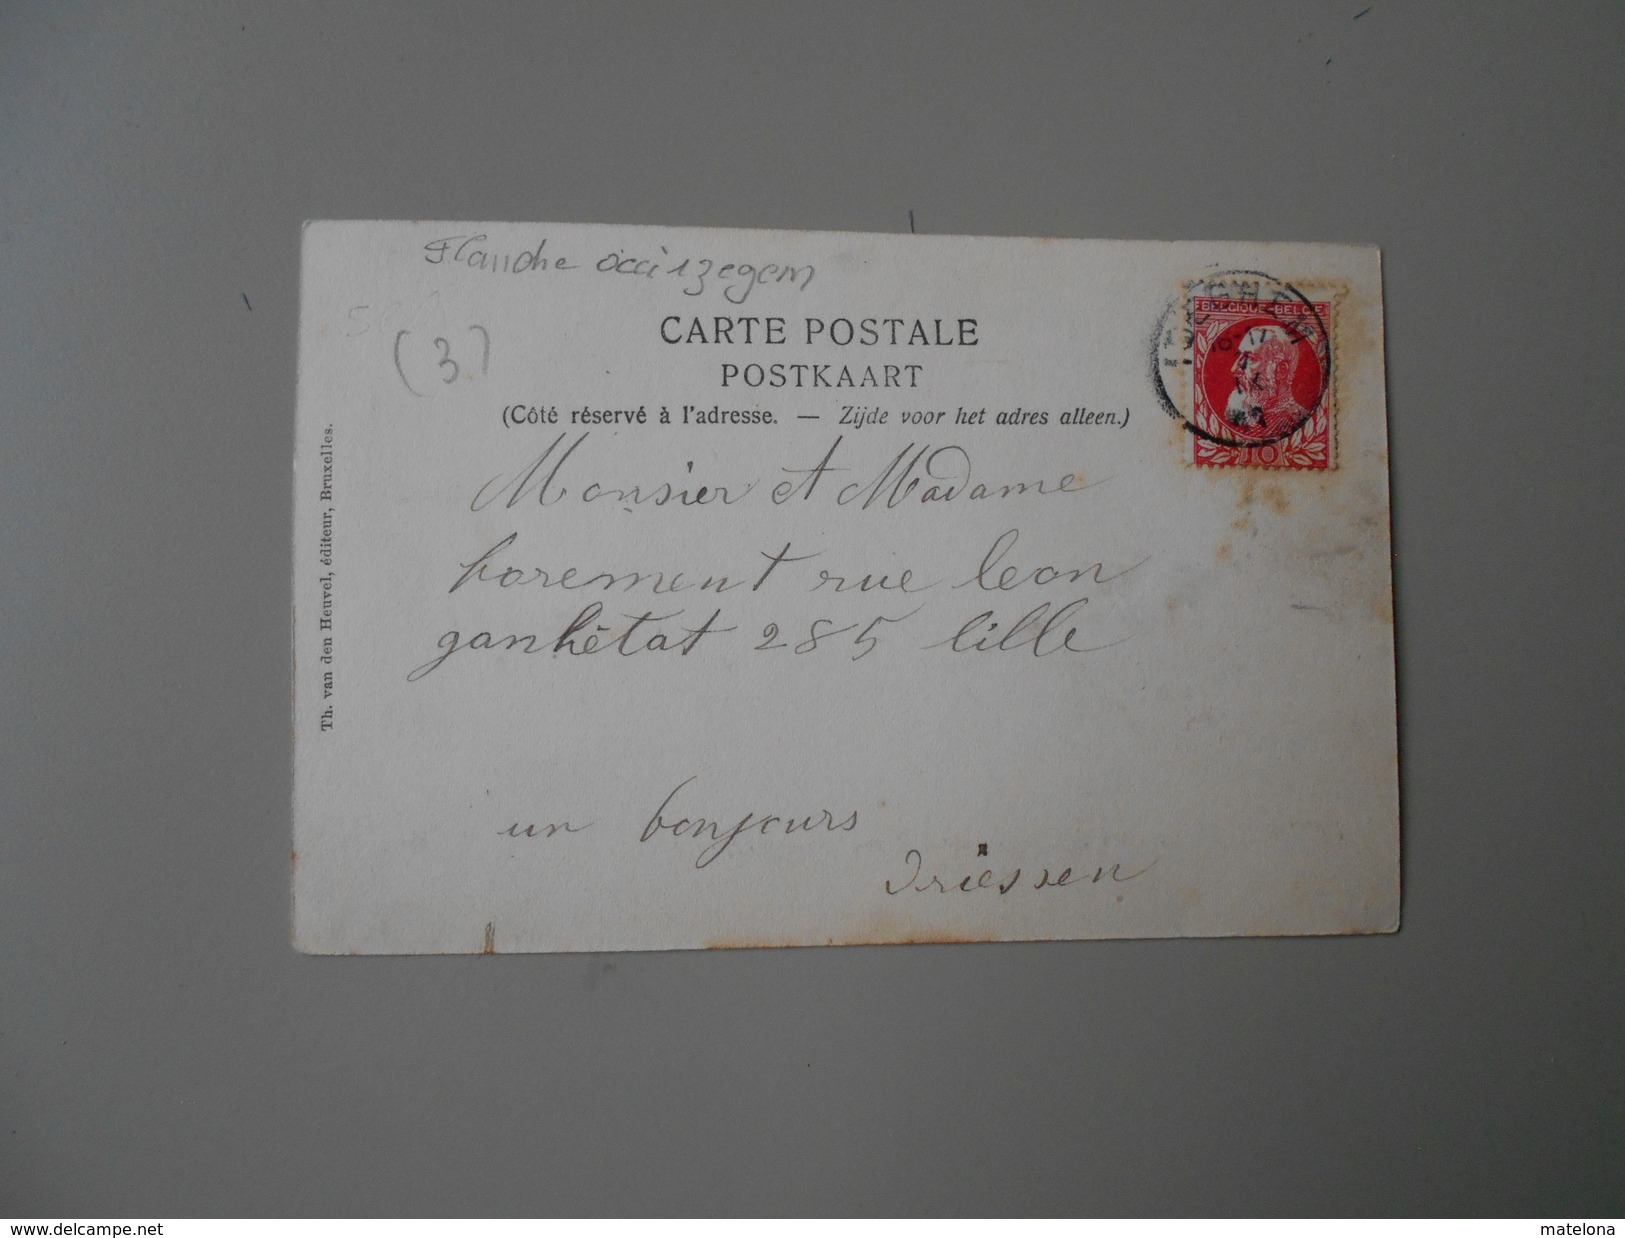 Flandre occi izegem
(3)
CARTE POSTALE
POSTKAART
(Côté réservé à l'adresse. — Zijde voor het adres alleen.)
BELGIQUE-BELGIË
10
Monsier et Madame
borement rue leon
ganhêtat 285 lille
un bonjours
Driessen
Th. van den Heuvel, éditeur, Bruxelles.
www.delcampe.net
matelona